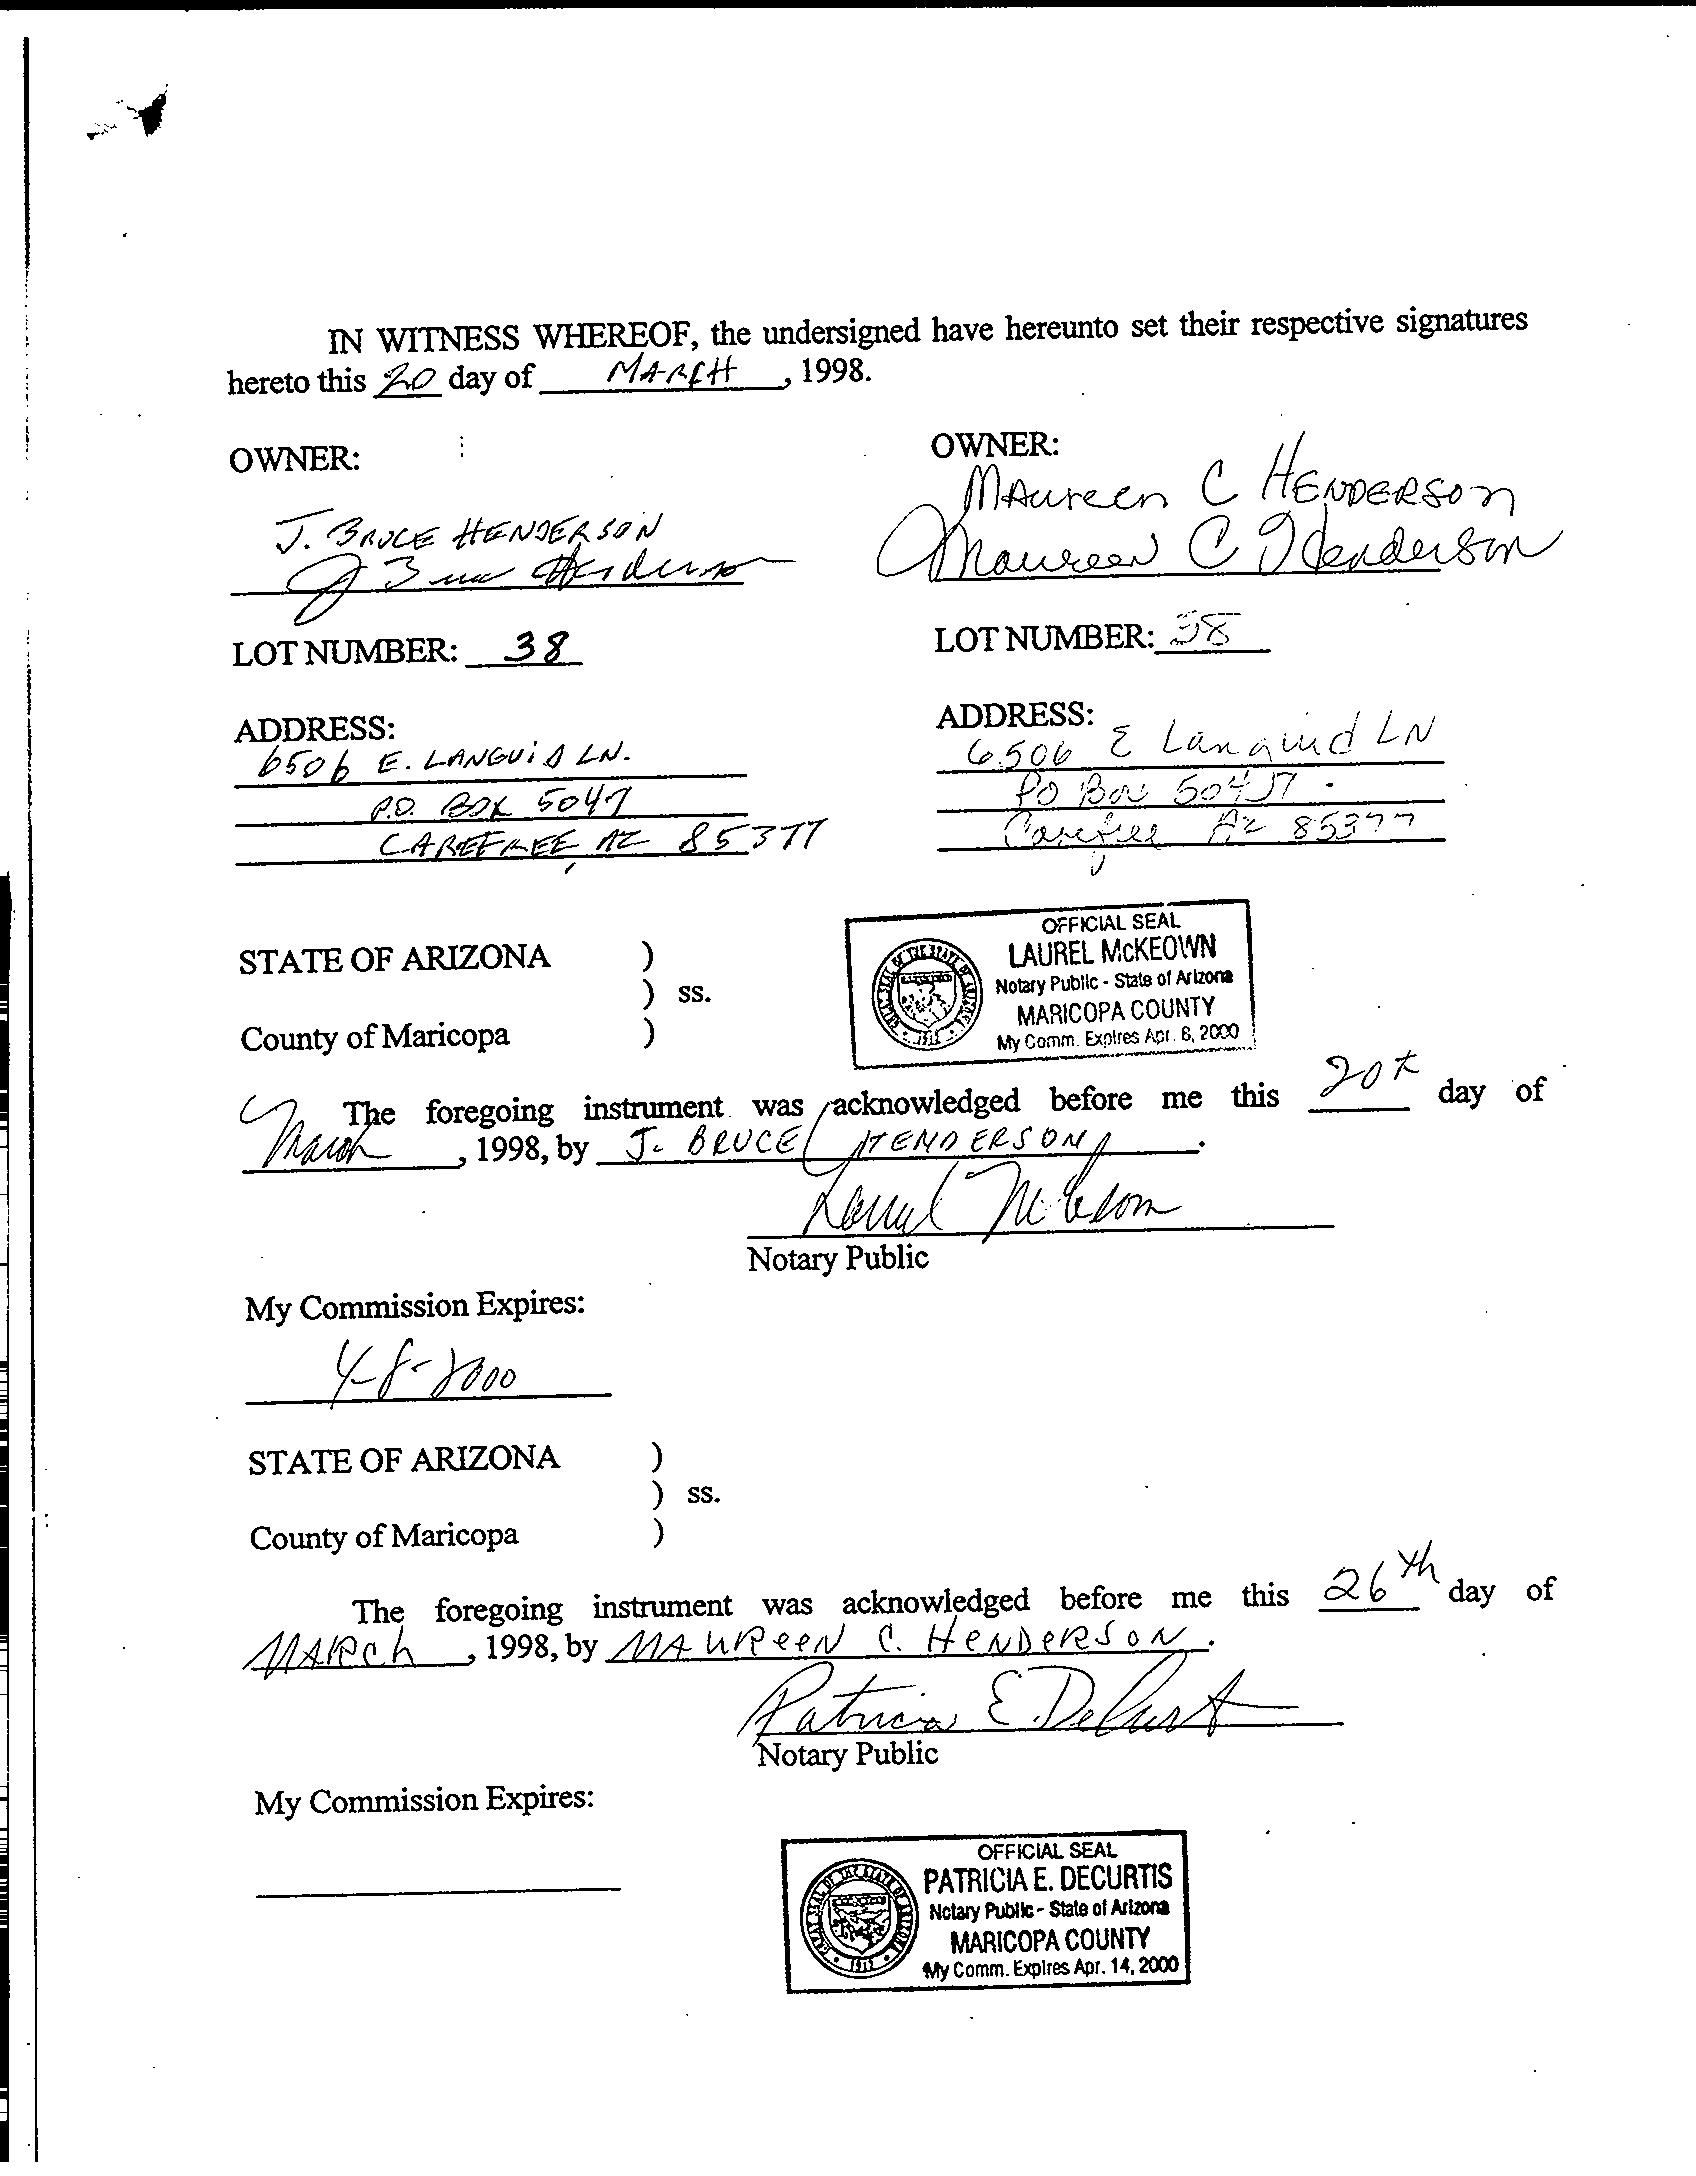 IN WITNESS WHEREOF, the undersigned have hereunto set their respective signatures
hereto this 20 day of MARCH, 1998.
OWNER:
J. BRUCE HENDERSON
J Bruce Henderson
LOT NUMBER: 38
ADDRESS:
6506 E. LANGUID LN.
P.O. BOX 5047
CAREFREE, AZ 85377
OWNER:
MAureen C HENDERSON
Maureen C Henderson
LOT NUMBER: 38
ADDRESS:
6506 E Languid LN
PO Box 5047
Carefree Az 85377
STATE OF ARIZONA )
) ss.
County of Maricopa )
OFFICIAL SEAL
LAUREL McKEOWN
Notary Public - State of Arizona
MARICOPA COUNTY
My Comm. Expires Apr. 8, 2000
GREAT SEAL OF THE STATE OF ARIZONA
1912
The foregoing instrument was acknowledged before me this 20th day of
March, 1998, by J. BRUCE HENDERSON.
Laurel McKeown
Notary Public
My Commission Expires:
4-8-2000
STATE OF ARIZONA )
) ss.
County of Maricopa )
The foregoing instrument was acknowledged before me this 26th day of
MARch, 1998, by MAUReeN C. HeNDeRSON.
Patricia E. DeCurtis
Notary Public
My Commission Expires:
OFFICIAL SEAL
PATRICIA E. DECURTIS
Notary Public - State of Arizona
MARICOPA COUNTY
My Comm. Expires Apr. 14, 2000
GREAT SEAL OF THE STATE OF ARIZONA
1912